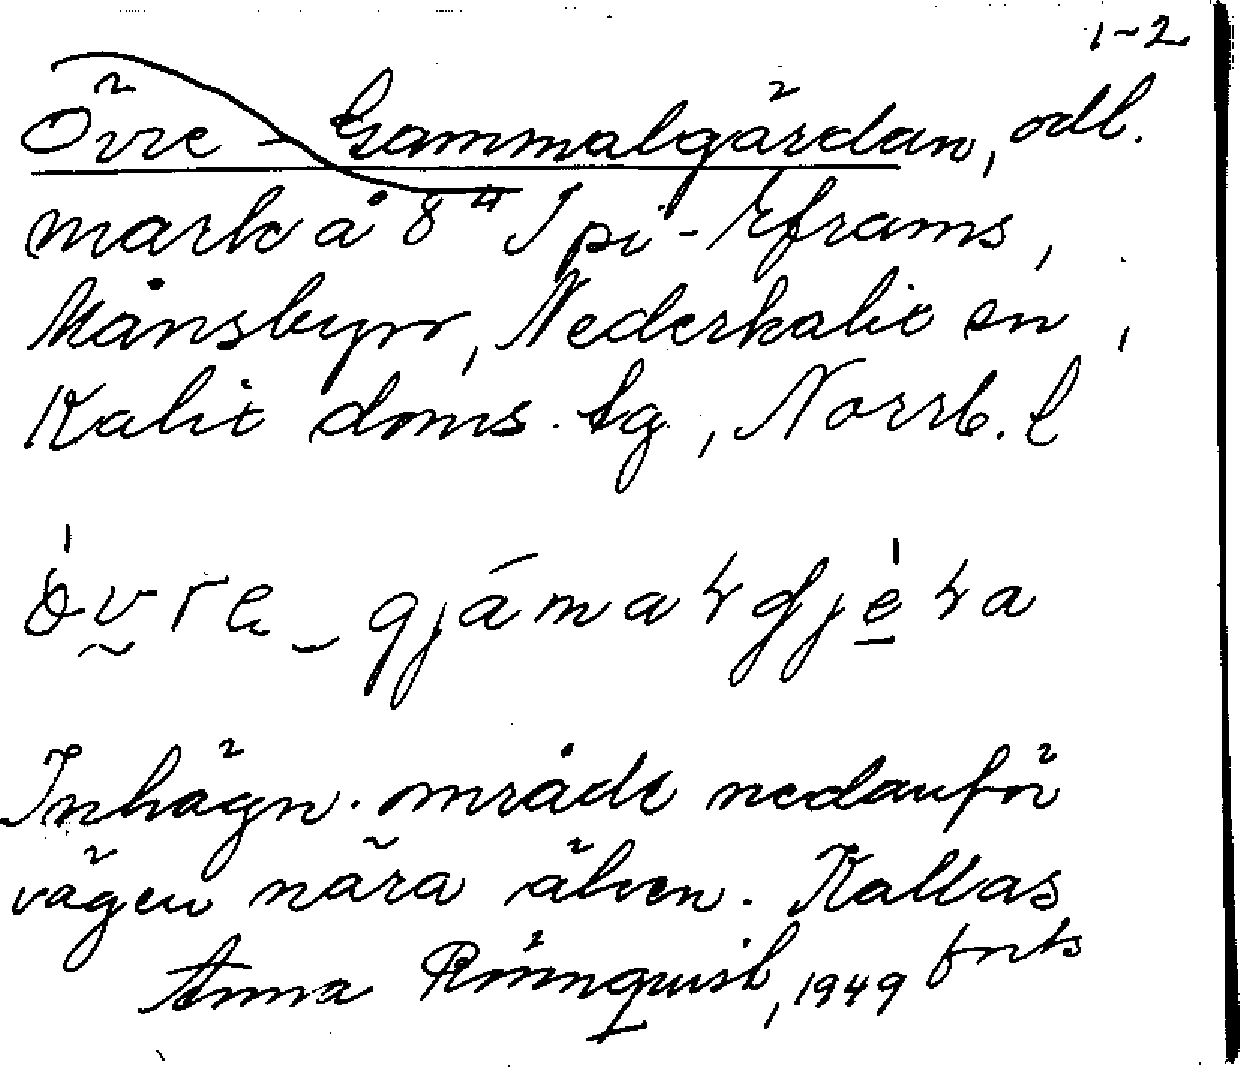 1-2
Övre - Gammalgärdan, odl.
mark å 8⁴ Ipi-Eframs,
Månsbyn, Nederkalix sn,
Kalix doms. tg, Norrb. l
Inhägn. område nedanför
vägen nära älven. Kallas
forts
Anna Rönnquist, 1949